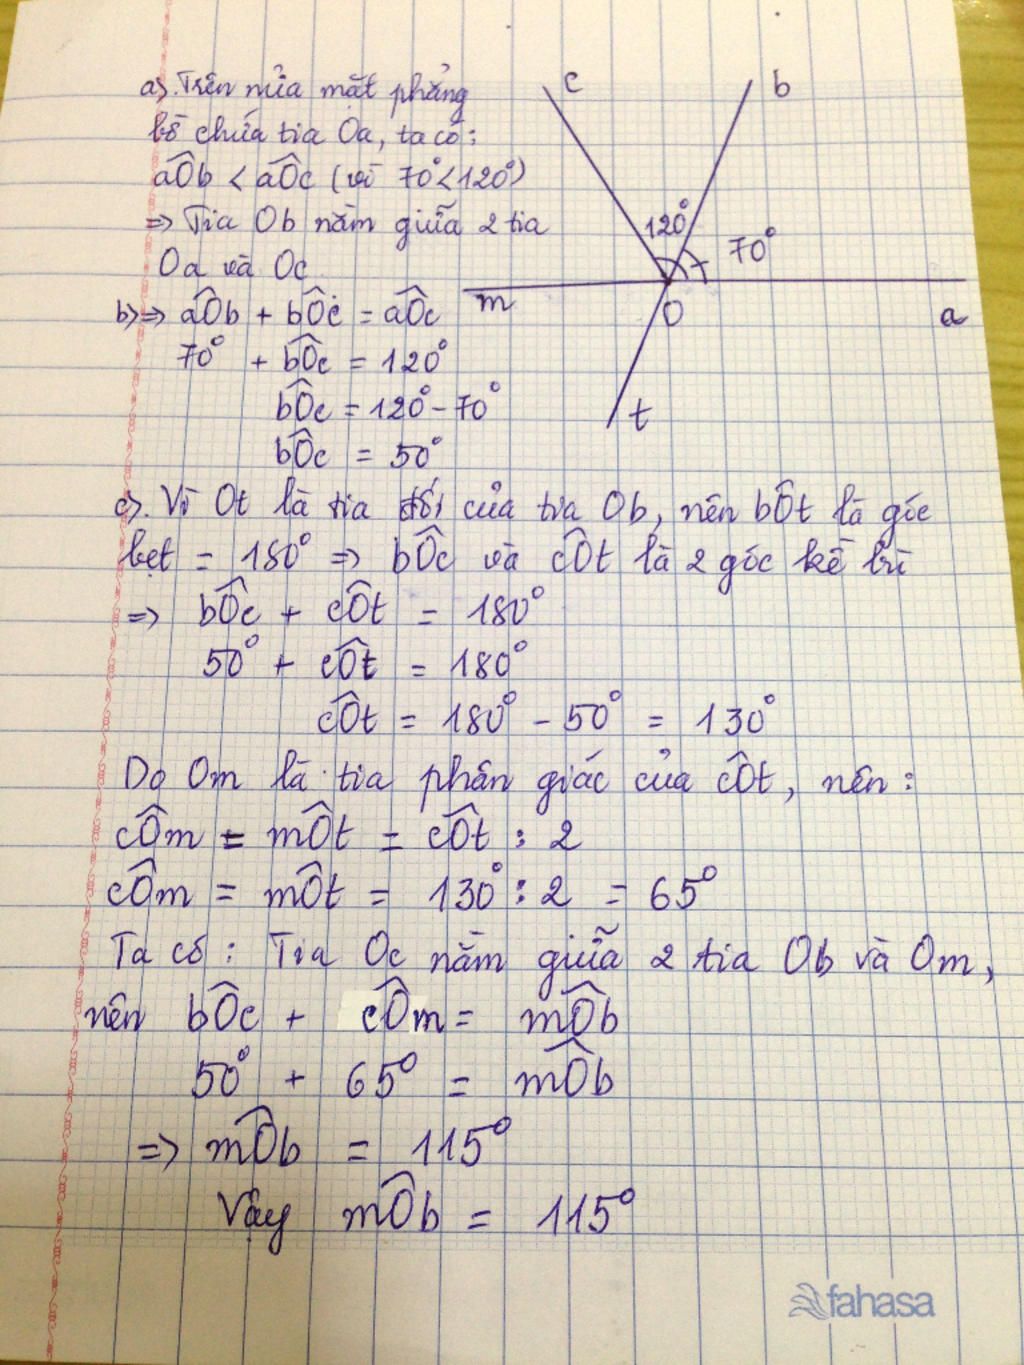 a). Trên nửa mặt phẳng
bờ chứa tia Oa, ta có:
aÔb < aÔc (vì 70° < 120°)
=> Tia Ob nằm giữa 2 tia
Oa và Oc
b) => aÔb + bÔc = aÔc
70° + bÔc = 120°
bÔc = 120° - 70°
bÔc = 50°
c
b
120°
70°
m
O
a
t
c). Vì Ot là tia đối của tia Ob, nên bÔt là góc
bẹt = 180° => bÔc và cÔt là 2 góc kề bù
=> bÔc + cÔt = 180°
50° + cÔt = 180°
cÔt = 180° - 50° = 130°
Do Om là tia phân giác của cÔt, nên:
cÔm = mÔt = cÔt : 2
cÔm = mÔt = 130° : 2 = 65°
Ta có: Tia Oc nằm giữa 2 tia Ob và Om,
nên bÔc + cÔm = mÔb
50° + 65° = mÔb
=> mÔb = 115°
Vậy mÔb = 115°
fahasa